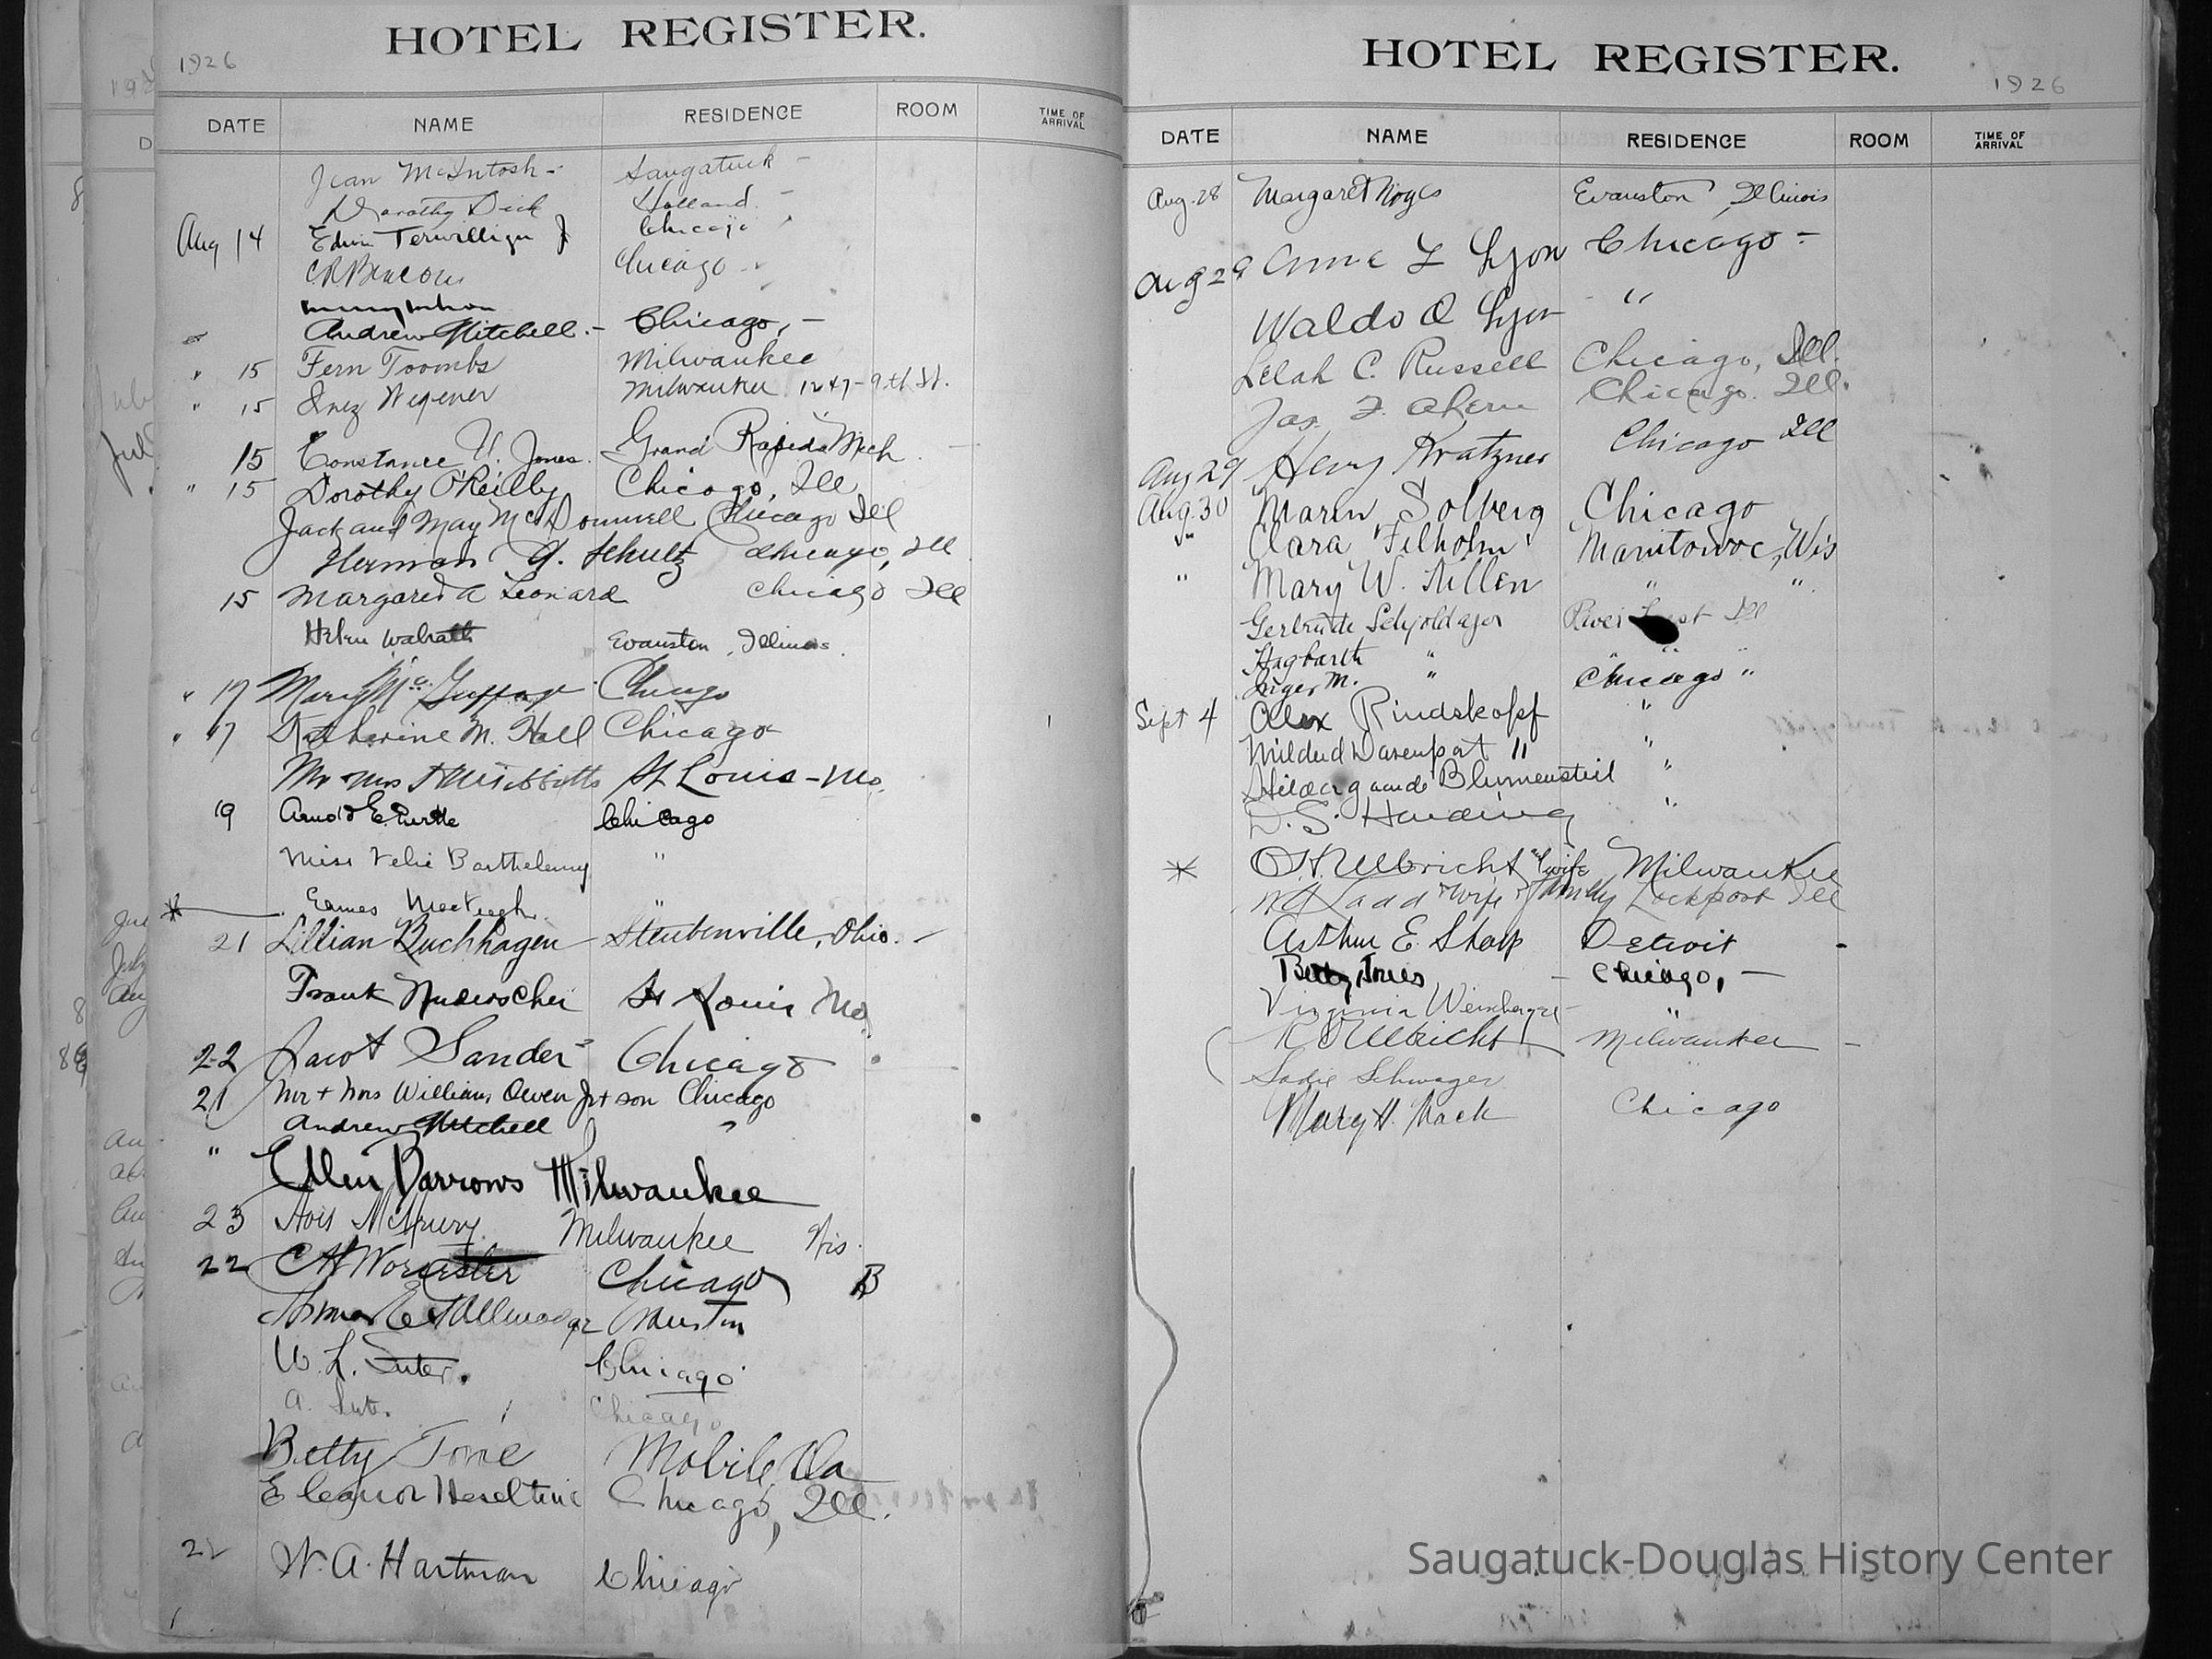 HOTEL REGISTER.
1926
DATE NAME RESIDENCE ROOM TIME OF ARRIVAL
Jean McIntosh - Saugatuck -
Dorothy Dick Holland. -
Aug 14 Edwin Terwilliger Jr Chicago
Chicago
Andrew Mitchell. - Chicago, -
" 15 Fern Toombs Milwaukee
" 15 Inez Wegener Milwaukee 1247-9th St.
15 Constance U. Jones. Grand Rapids Mich.
" 15 Dorothy O'Reilly Chicago, Ill
Jack and May McDonnell Chicago Ill
Herman A. Schultz Chicago, Ill
15 Margaret A Leonard Chicago Ill
Helen Walrath Evanston, Illinois.
" 17 Mary Chicago
" 17 Katherine M. Hall Chicago
Mr Mrs St Louis - Mo.
19 Arnold E. Chicago
Miss Barthelemy "
Eames MacVeagh. "
21 Lillian Buchhagen Steubenville, Ohio. -
Frank Nuderscher St Louis Mo.
22 Sander Chicago
21 Mr + Mrs William Owen Jr + son Chicago
Andrew Mitchell "
" Ellen Barrows Milwaukee
23 Milwaukee Wis.
22 C H Worcester Chicago B
Thomas E Tallmadge Evanston
W. L. Suter. Chicago
A. Chicago
Betty Mobile, Ala
Eleanor Heseltine Chicago, Ill.
22 W. A. Hartman Chicago
HOTEL REGISTER.
1926
DATE NAME RESIDENCE ROOM TIME OF ARRIVAL
Aug. 28 Margaret Noyes Evanston, Illinois
Aug 29 Anna L Lyon Chicago -
Waldo O Lyon "
Lelah C. Russell Chicago, Ill.
Jas. F. Ahern Chicago. Ill.
Aug 29 Henry Kratzner Chicago Ill
Aug. 30 Marin Solberg Chicago
" Clara Filholm Manitowoc, Wis
" Mary W. Nillen " "
Gertrude Schjoldager River Ill
Hagbarth " " " "
Inger M. " Chicago "
Sept 4 Alex Rindskopf "
Mildred Davenport " "
Hildegaude Blumensteil "
D. S. Harding "
* O. H. Ulbricht & wife Milwaukee
Ladd & wife & family Lockport Ill
Arthur E. Sharp Detroit -
Betty - Chicago, -
Virginia Weinberger - "
Ulbricht Milwaukee -
Sadie Schwager "
Mary H. Mack Chicago
Saugatuck-Douglas History Center